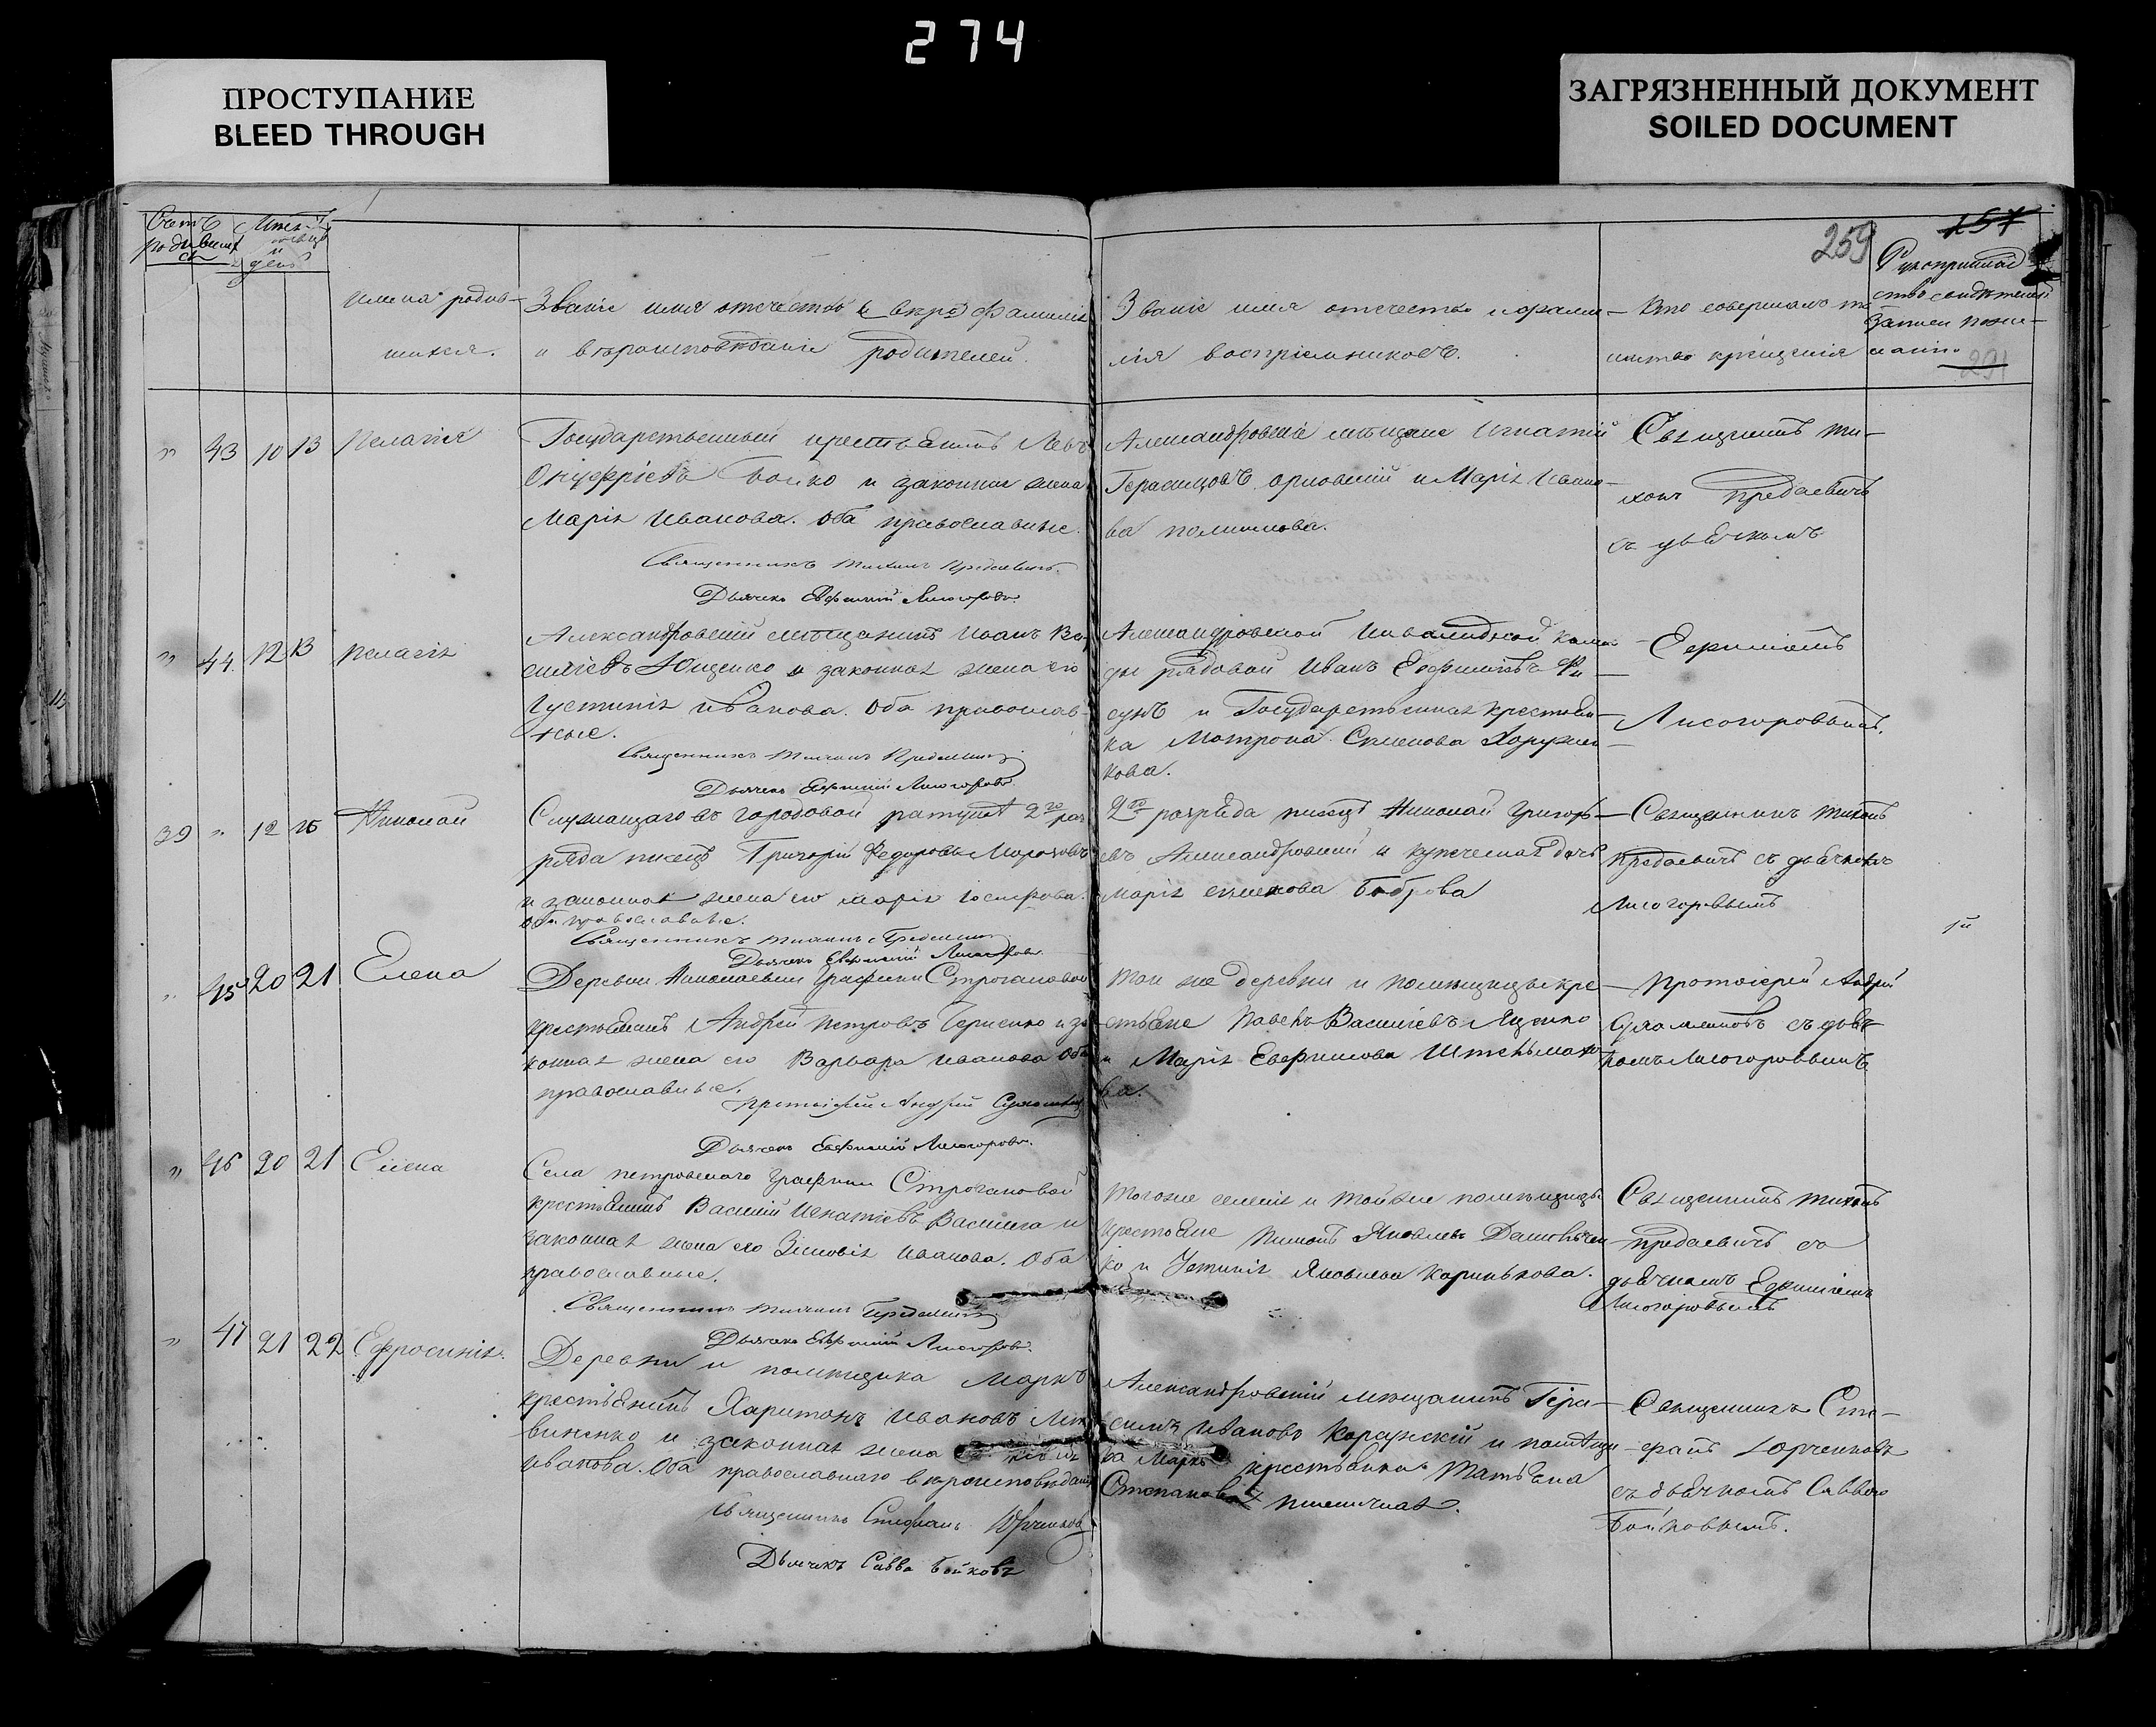 274
ПРОСТУПАНИЕ
BLEED THROUGH
ЗАГРЯЗНЕННЫЙ ДОКУМЕНТ
SOILED DOCUMENT
259
157
Счетъ
день
Имена родив-
шихся.
Званіе имя отчество и фамилія
и вѣроисповѣданіе родителей.
Званіе имя отчество и фами-
лія воспріемниковъ.
Кто совершалъ та
инство крещенія
Рукоприклад
ство свидѣтелей
записи
291
" 43 10 13 Пелагія
Государственный крестьянинъ Левъ
Онуфріевъ Бойко и законная жена
Марія Иванова. Оба православные.
Священникъ Тихонъ Предаевичъ.
Дьячекъ Евфимий Лисогоровъ.
Александровскіе мѣщане Игнатій
Герасимовъ орловскій и Марія Ивано-
ва
Священникъ Ти-
хонъ Предаевичъ
съ дьячкомъ
" 44 12 13 Пелагія
Александровскій мѣщанинъ Иванъ Ва-
силіевъ Ющенко и законная жена его
Іустинія Иванова. Оба православ-
ные.
Священникъ Тихонъ Предаевичъ
Дьячекъ Евфимий Лисогоровъ.
Александровской Инвалидной коман-
ды рядовой Иванъ Евфиміевъ Фи-
сунъ и Государственная крестьян-
ка Матрона Семенова
кова.
Лисогоровымъ.
39 " 12 15 Николай
Служащаго въ городовой ратушѣ 2го раз
ряда писецъ Григорій Федоровъ Морозовъ
и законная жена его Марія Іосифова.
Оба православные.
Священникъ Тихонъ Предаевичъ
Дьячекъ Евфимий Лисогоровъ.
2го разряда писецъ Николай Григорь-
евъ Александровскій и купеческая дочь
Марія Семенова Боброва
Священникъ Тихонъ
Предаевичъ съ дьячкомъ
Лисогоровымъ
" 45 20 21 Елена
Деревни Николаевки Графини Строгановой
крестьянинъ Андрей Петровъ и за
конная жена его Варвара Иванова Оба
православные.
Протоіерей Андрей
Дьячекъ Евфимий Лисогоровъ.
Той же деревни и помѣщицы кре-
стьяне Павелъ Василіевъ Яценко
и Марія Евфимова
ва.
Протоіерей Андрей
съ дьяч
комъ Лисогоровымъ
" 46 20 21 Елена
Села Петровского Графини Строгановой
крестьянинъ Василій Игнатіевъ и
законная жена его Зиновія Иванова. Оба
православные.
Священникъ Тихонъ Предаевичъ
Дьячекъ Евфимий Лисогоровъ.
Тогоже селенія и тойже помѣщицы
крестьяне Яковлевъ
ко и Устинія Яковлева
Священникъ Тихонъ
Предаевичъ съ
дьячкомъ Евфиміемъ
Лисогоровымъ
" 47 21 22 Ефросинія.
Деревни и помѣщика Маркъ
крестьянинъ Харитонъ Ивановъ Лит
виненко и законная жена
Иванова. Оба православнаго вѣроисповѣданія
Священникъ Стефанъ Юрченковъ
Дьячекъ Савва Бойковъ
Александровскій мѣщанинъ Гера-
симъ Ивановъ и помѣщи
ка Маркъ крестьянка Татьяна
Степанова
Священникъ Сте-
фанъ Юрченковъ
съ дьячкомъ Саввою
Бойковымъ.